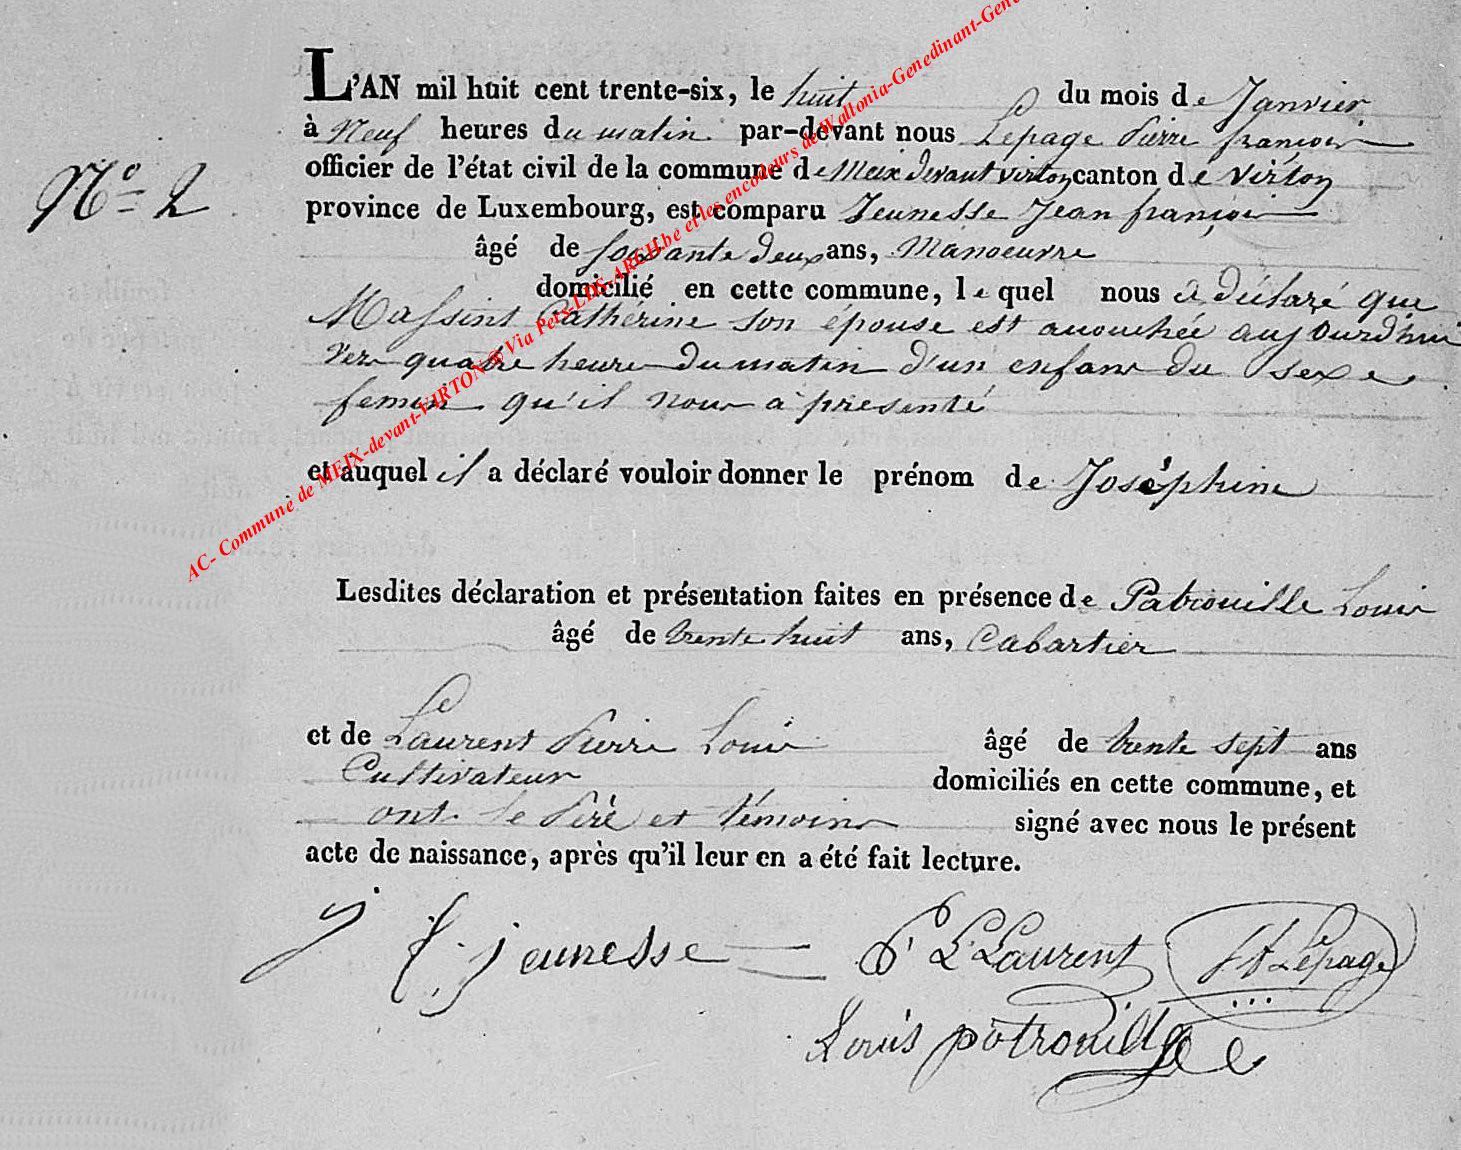 L'AN mil huit cent trente-six, le huit du mois de Janvier
à Neuf heures du matin par-devant nous Lepage Pierre françois
officier de l'état civil de la commune de Meix devant virton canton de virton
N° 2
province de Luxembourg, est comparu Jeunesse Jean françois
âgé de soixante deux ans, Manoeuvre
domicilié en cette commune, le quel nous a déclaré que
Massint Cathérine son épouse est accouchée aujourd'hui
vers quatre heures du matin d'un enfant du sexe
feminin qu'il nous a présenté
et auquel il a déclaré vouloir donner le prénom de Joséphine
Lesdites déclaration et présentation faites en présence de Patrouille Louis
âgé de trente huit ans, Cabartier
et de Laurent Pierre Louis âgé de trente sept ans
Cultivateur domiciliés en cette commune, et
ont le Péré et témoins signé avec nous le présent
acte de naissance, après qu'il leur en a été fait lecture.
J f. jeunesse P L Laurent Lepage
Louis patrouille
AC- Commune de MEIX-devant-VIRTON @ Via Pers-LDS-ARCH.be et les encodeurs de Wallonia-Genedinant-Gene